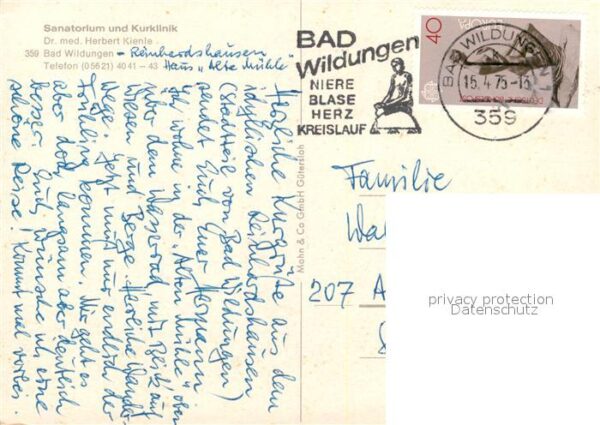 Sanatorium und Kurklinik
Dr. med. Herbert Kienle
359 Bad Wildungen - Reinhardshausen
Telefon (05621) 4041 - 43 Haus „Alte Mühle"
BAD
Wildungen
NIERE
BLASE
HERZ
KREISLAUF
40
EUROPA
DEUTSCHE BUNDESPOST
BAD WILDUNGEN 1
15.4.75-15
359
Mohn & Co GmbH Gütersloh
Herzliche Kurgrüße aus dem
idyllischen Reinhardshausen
(Stadtteil von Bad Wildungen)
sendet Euch Euer Hermann
Ich wohne in der „Alten Mühle" oben
über dem Wasserrad, mit Blick auf
Wiesen und Berge. Herrliche Wander-
wege. Jetzt muß nur endlich der
Frühling kommen. Mir geht es
aber doch langsam aber deutlich
besser. Euch wünsche ich eine
schöne Reise! Kommt mal vorbei.
Familie
Wa
207 A
privacy protection
Datenschutz